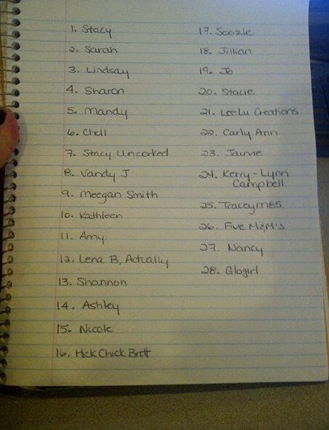 1. Stacy
2. Sarah
3. Lindsay
4. Sharon
5. Mandy
6. Chell
7. Stacy Uncorked
8. Vandy J
9. Meegan Smith
10. Kathleen
11. Amy
12. Lena B, Actually
13. Shannon
14. Ashley
15. Nicole
16. Hick Chick Brett
17. Soozle
18. Jillian
19. Jo
20. Stacie
21. LeeLu Creations
22. Carly Ann
23. Jaime
24. Kerry-Lynn
Campbell
25. Traceym85
26. Five M&M's
27. Nancy
28. Glogirl